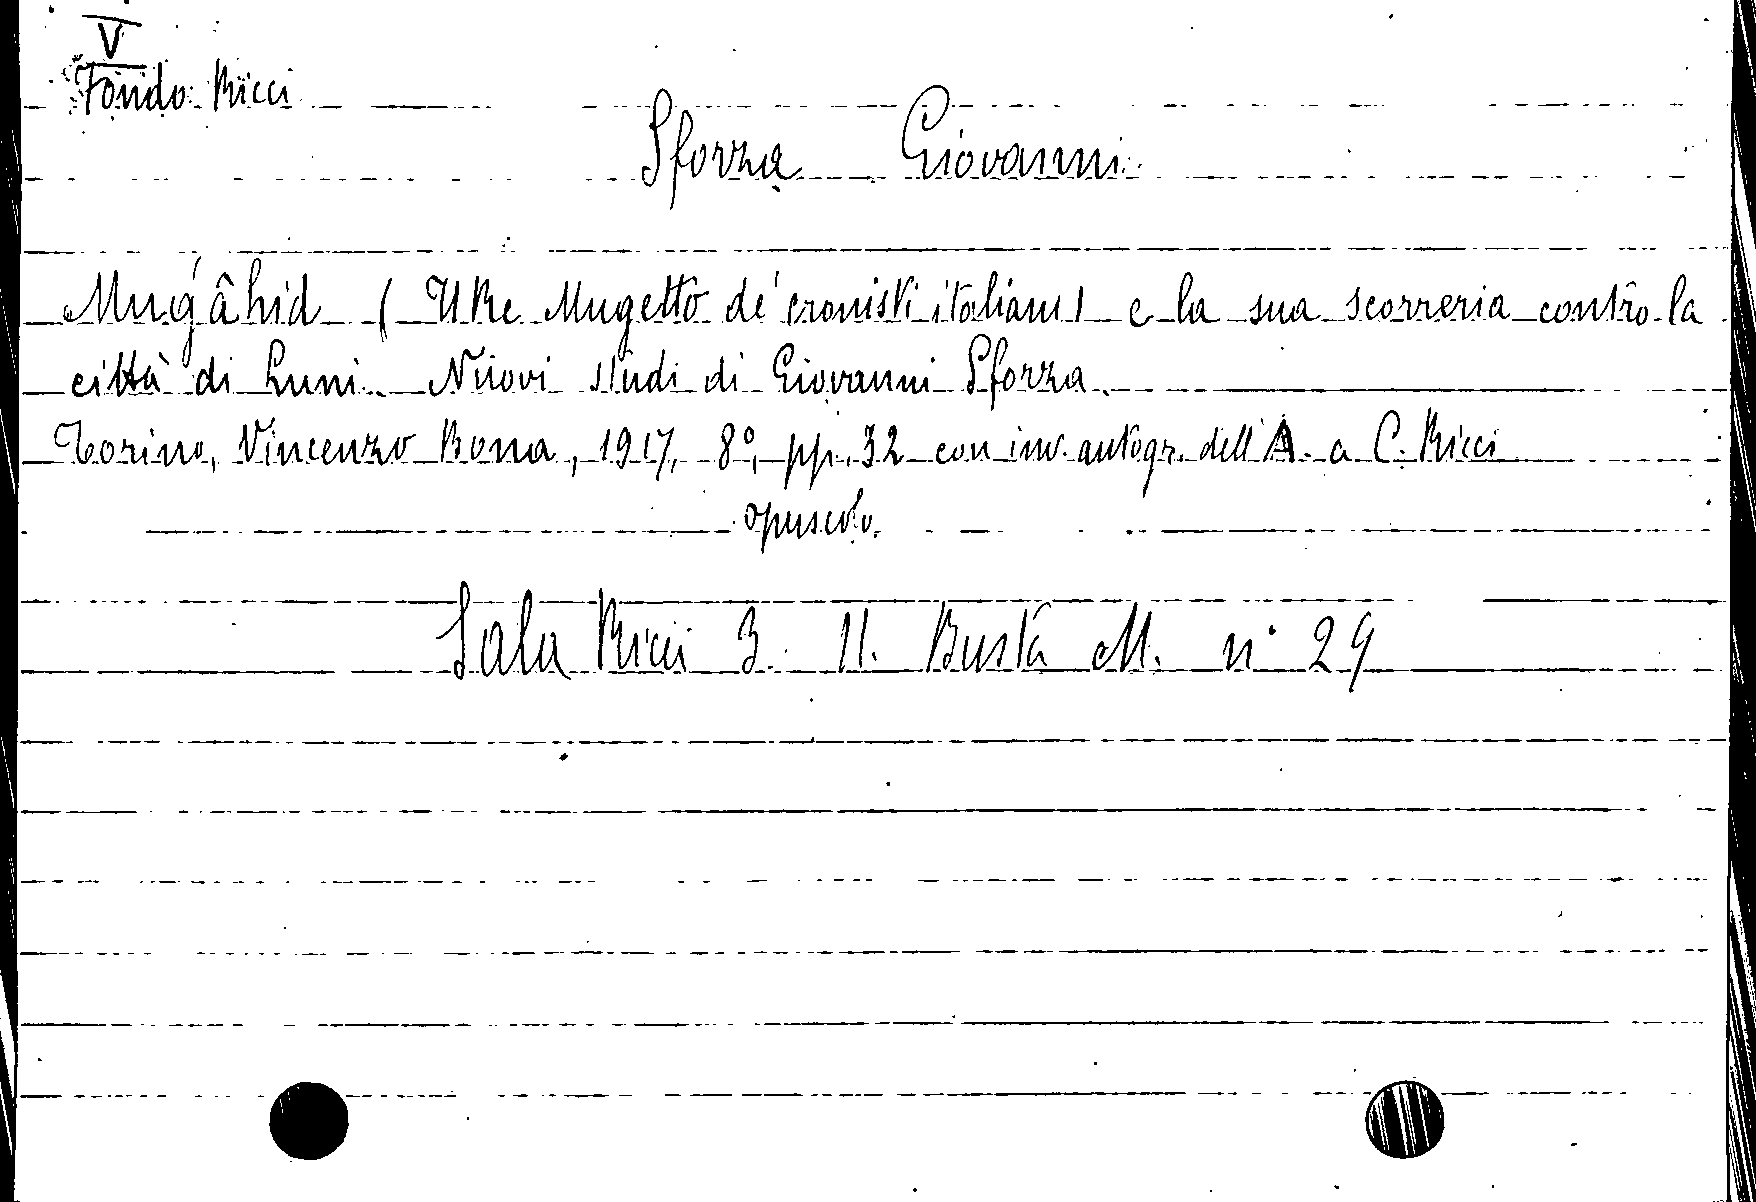 V
Fondo Ricci
Sforza Giovanni
Mug'âhid (Il Re Mugetto de' cronisti italiani) e la sua scorreria contro la
città di Luni. Nuovi studi di Giovanni Sforza.
Torino, Vincenzo Bona, 1917, 8°, pp. 32 con inv. autogr. dell'A. a C. Ricci
opuscolo.
Sala Ricci 3. 11. Busta M. n° 29